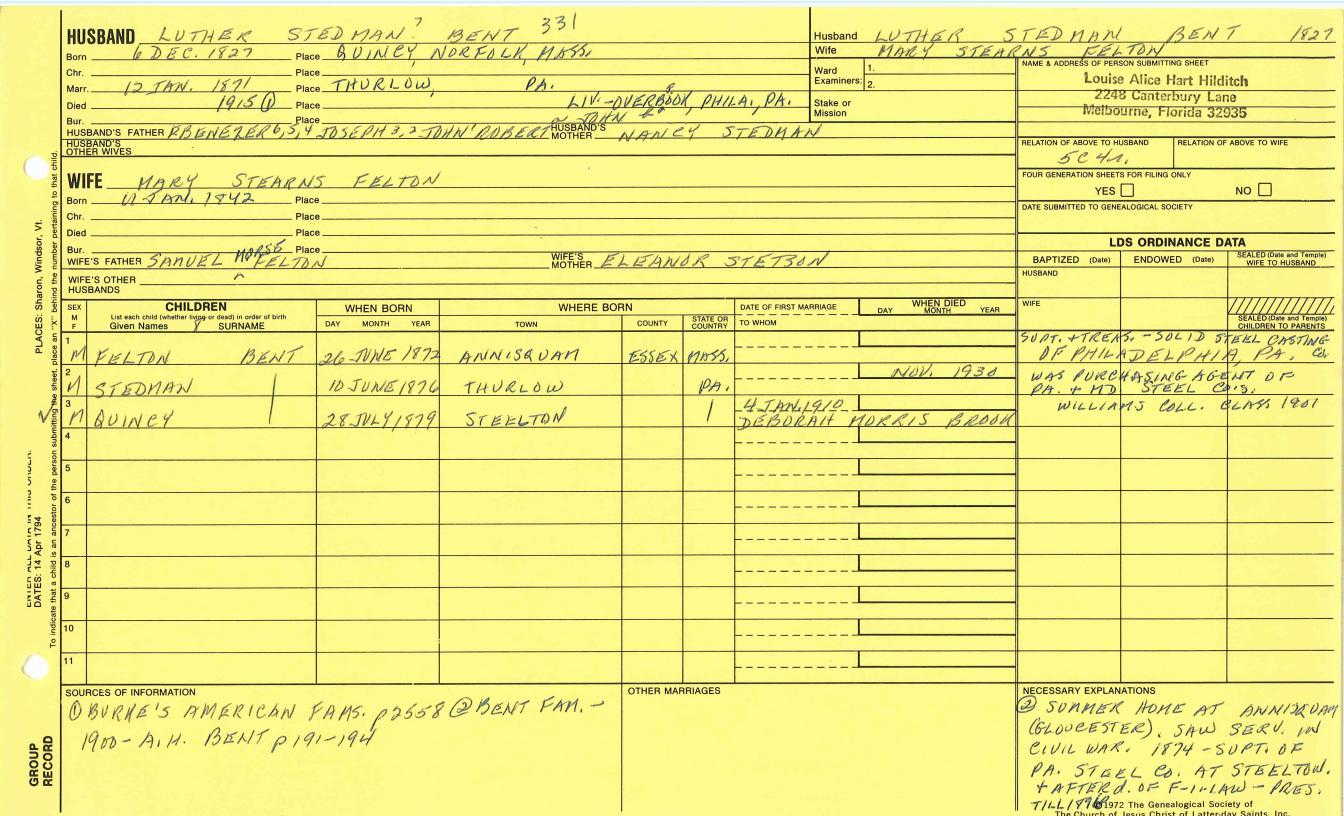 HUSBAND LUTHER STEDMAN? BENT 331
Born 6 DEC. 1827 Place QUINCY, NORFOLK, MASS.
Chr. Place
Marr. 12 JAN. 1871 Place THURLOW, PA.
Died 1915 ① Place LIV. - OVERBROOK, PHILA., PA.
Bur. Place
HUSBAND'S FATHER EBENEZER 6,5,4 JOSEPH 3,2 JOHN' ROBERT HUSBAND'S MOTHER NANCY STEDMAN
HUSBAND'S OTHER WIVES
WIFE MARY STEARNS FELTON
Born JAN. 1842 Place
Chr. Place
Died Place
Bur. Place
WIFE'S FATHER SAMUEL MORSE FELTON WIFE'S MOTHER ELEANOR STETSON
WIFE'S OTHER HUSBANDS
Husband LUTHER STEDMAN BENT 1827
Wife MARY STEARNS FELTON
Ward Examiners: 1.
2.
Stake or Mission
NAME & ADDRESS OF PERSON SUBMITTING SHEET
Louise Alice Hart Hilditch
2248 Canterbury Lane
Melbourne, Florida 32935
RELATION OF ABOVE TO HUSBAND RELATION OF ABOVE TO WIFE
5C4r.
FOUR GENERATION SHEETS FOR FILING ONLY
YES NO
DATE SUBMITTED TO GENEALOGICAL SOCIETY
LDS ORDINANCE DATA
BAPTIZED (Date) ENDOWED (Date) SEALED (Date and Temple) WIFE TO HUSBAND
HUSBAND
WIFE
SEALED (Date and Temple) CHILDREN TO PARENTS
SEX M F CHILDREN WHEN BORN WHERE BORN DATE OF FIRST MARRIAGE WHEN DIED
List each child (whether living or dead) in order of birth
Given Names SURNAME DAY MONTH YEAR TOWN COUNTY STATE OR COUNTRY TO WHOM DAY MONTH YEAR
1 M FELTON BENT 26 JUNE 1872 ANNISQUAM ESSEX MASS. SUPT. + TREAS. - SOLID STEEL CASTING
OF PHILADELPHIA, PA. Co.
2 M STEDMAN 10 JUNE 1876 THURLOW PA. NOV. 1930 WAS PURCHASING AGENT OF
PA. + MD STEEL Co's.
3 M QUINCY 28 JULY 1879 STEELTON 4 JAN. 1910 WILLIAMS COLL. CLASS 1901
DEBORAH MORRIS BROOK
4
5
6
7
8
9
10
11
SOURCES OF INFORMATION
① BURKE'S AMERICAN FAMS. p2558 ② BENT FAM. -
1900 - A.H. BENT p191-194
OTHER MARRIAGES
NECESSARY EXPLANATIONS
② SUMMER HOME AT ANNISQUAM
(GLOUCESTER). SAW SERV. IN
CIVIL WAR. 1874 - SUPT. OF
PA. STEEL Co. AT STEELTON.
+ AFTER d. OF F-I-LAW - PRES.
TILL
©1972 The Genealogical Society of
The Church of Jesus Christ of Latter-day Saints, Inc.
PLACES: Sharon, Windsor, Vt.
DATES: 14 Apr 1794
To indicate that a child is an ancestor of the person submitting the sheet, place an "X" behind the number pertaining to that child.
GROUP RECORD